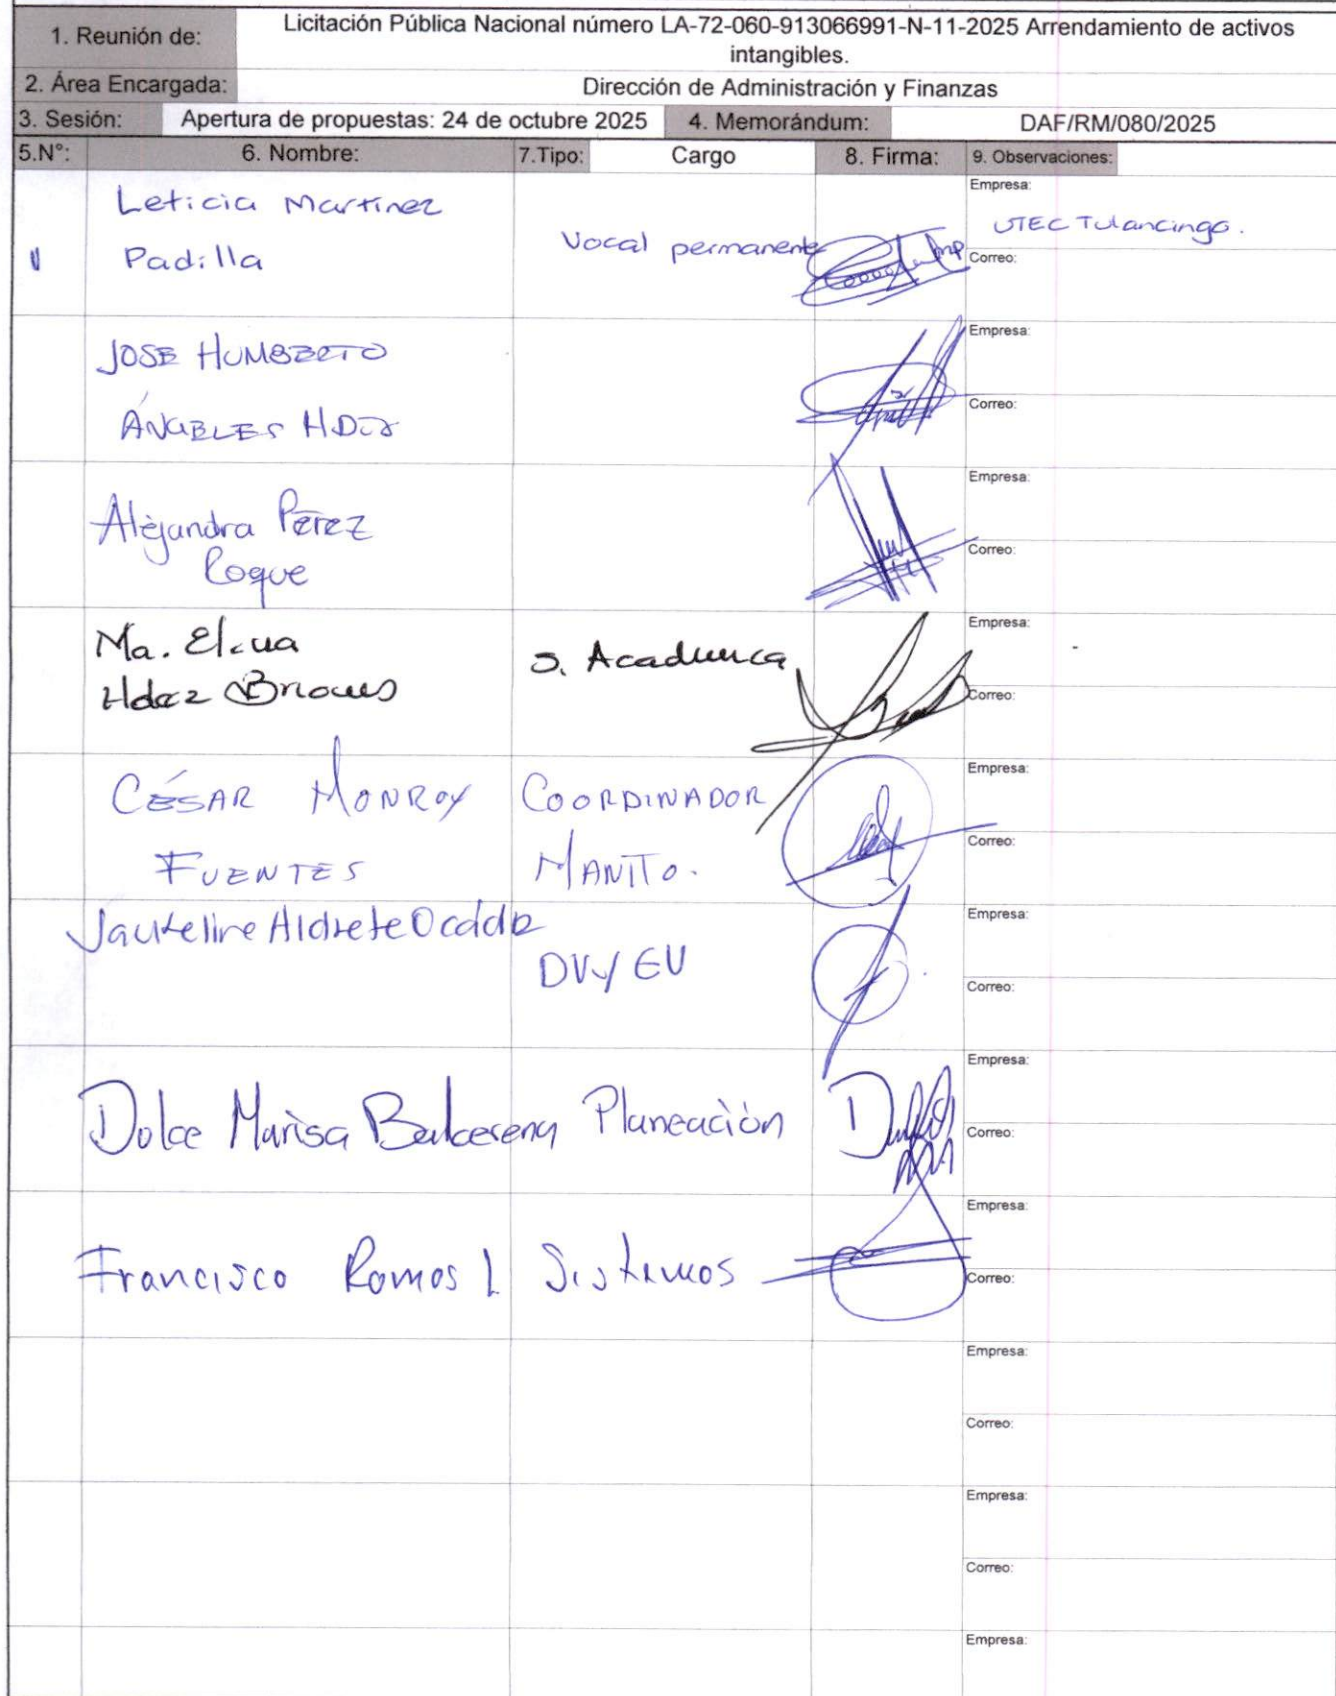 1. Reunión de:
Licitación Pública Nacional número LA-72-060-913066991-N-11-2025 Arrendamiento de activos
intangibles.
2. Área Encargada:
Dirección de Administración y Finanzas
3. Sesión:
Apertura de propuestas: 24 de octubre 2025
4. Memorándum:
DAF/RM/080/2025
5.N°:
6. Nombre:
7.Tipo:
Cargo
8. Firma:
9. Observaciones:
Leticia Martinez
Padilla
Vocal permanente
Empresa:
UTEC Tulancingo.
Correo:
JOSE HUMBERTO
ÁNGELES HDZ
Empresa:
Correo:
Alejandra Pérez
Roque
Empresa:
Correo:
Ma. Elena
Hdez Briones
S. Academica
Empresa:
Correo:
CÉSAR MONROY
FUENTES
COORDINADOR
MANTTO.
Empresa:
Correo:
Aldrete
DV y EU
Empresa:
Correo:
Dulce Marisa
Planeación
Empresa:
Correo:
Francisco Ramos L
Sistemas
Empresa:
Correo:
Empresa:
Correo:
Empresa:
Correo:
Empresa: